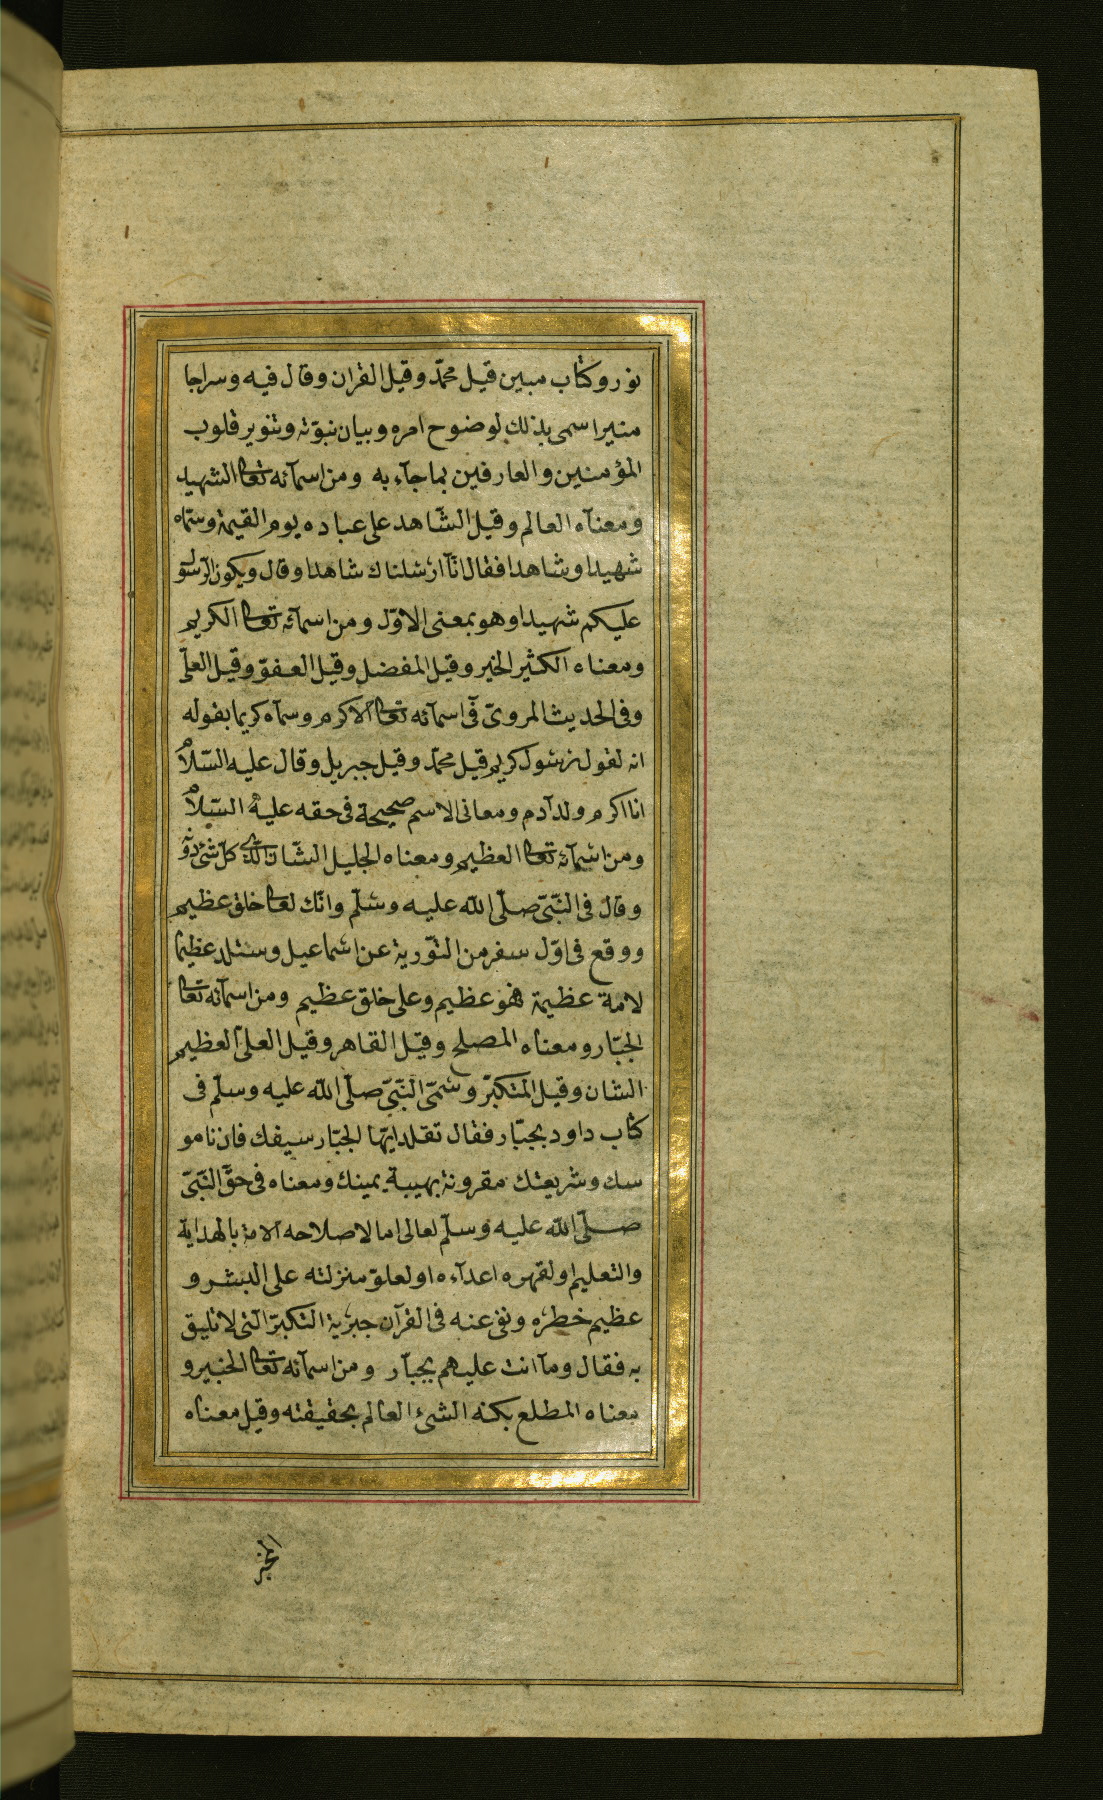 نور وكتاب مبين قيل محمّد وقيل القران وقال فيه وسراجا
منيرا سمى بذلك لوضوح امره وبيان نبوّته وتنوير قلوب
المؤمنين والعارفين بما جآء به ومن اسمآئه تعا الشهيد
ومعنآه العالم وقيل الشّاهد على عباده يوم القيمة وسمّاه
شهيدا وشاهدا فقال انّآ ارسلناك شاهدا وقال ويكون الرّسول
عليكم شهيدا وهو بمعنى الاوّل ومن اسمآئه تعا الكريم
ومعناه الكثير الخير وقيل المفضل وقيل العفوّ وقيل العلّى
وفى الحديث المروىّ فى اسمآئه تعا الاكرم وسمآه كريما بقوله
انه لقول رسول كريم قيل محمّد وقيل جبريل وقال عليه السّلام
انا اكرم ولد آدم ومعانى الاسم صحيحة فى حقه عليه السّلام
ومن اسمآئه تعا العظيم ومعناه الجليل الشّان الّذى كلّ شئ دونه
وقال فى النّبىّ صلّى اللّه عليه وسلّم وانّك لعلا خلق عظيم
ووقع فى اوّل سفر من التّورية عن اسماعيل وستلد عظيما
لامة عظيمة فهو عظيم وعلى خلق عظيم ومن اسمآئه تعا
الجبّار ومعناه المصلح وقيل القاهر وقيل العلى العظيم
الشان وقيل المتكبّر وسمّى النّبىّ صلّى اللّه عليه وسلّم فى
كتاب داود بجبّار فقال تقلد ايّها الجبّار سيفك فان نامو
سك وشريعتك مقرونة بهيبة يمينك ومعناه فى حقّ النّبىّ
صلّى اللّه عليه وسلّم لعالى اما لاصلاحه الامة بالهداية
والتعليم او لقهره اعدآءه او لعلوّ منزلته على البشر و
عظيم خطره ونفى عنه فى القرآن جبريّة التكبّر الّتى لا تليق
به فقال ومآ انت عليهم بجبّار ومن اسمآئه تعا الخبير و
معناه المطلع بكنه الشئ العالم بحقيقته وقيل معناه
المخبر